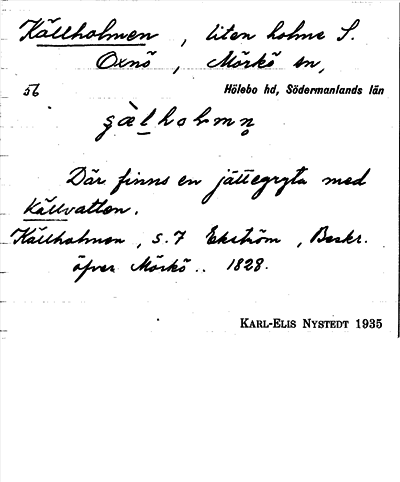 Källholmen, liten holme S.
Oxnö, Mörkö sn,
56 Hölebo hd, Södermanlands län
Där finns en jättegryta med
källvatten.
Källholmen, S. 7 Ekström, Beskr.
öfver Mörkö.. 1828.
KARL-ELIS NYSTEDT 1935